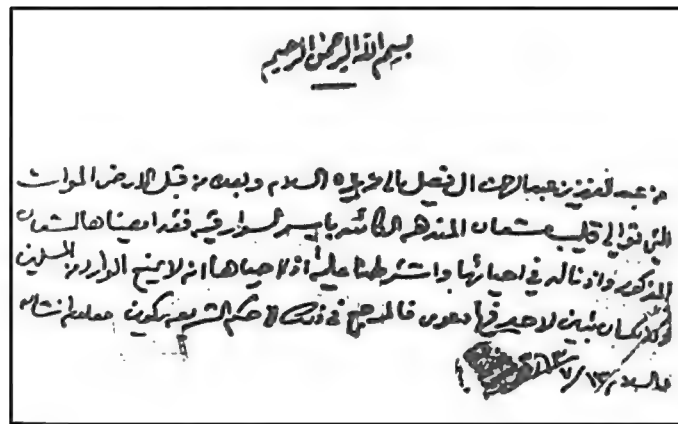 بسم الله الرحمن الرحيم
من عبد العزيز بن عبد الرحمن ال فيصل الى من يراه السلام وبعد من قبل الارض الموات
التي توالي قليب شعان المندهه الكائنه باسم السوارقيه فقد امضيناها لشعان
المذكور واذنا له في احيائها واشترطنا عليه اذا احياها انه لا يمنع الوارد من المسلمين
وان كان تبين لاحد فيها دعوى فالمرجع في ذلك الى حكم الشريعه يكون معلوم انشاء
والسلام